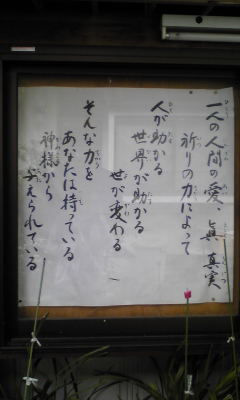 一人の人間の愛、眞、真実
祈りの力によって
人が助かる
世界が助かる
世が変わる
そんな力を
あなたは持っている
神様から
与えられている